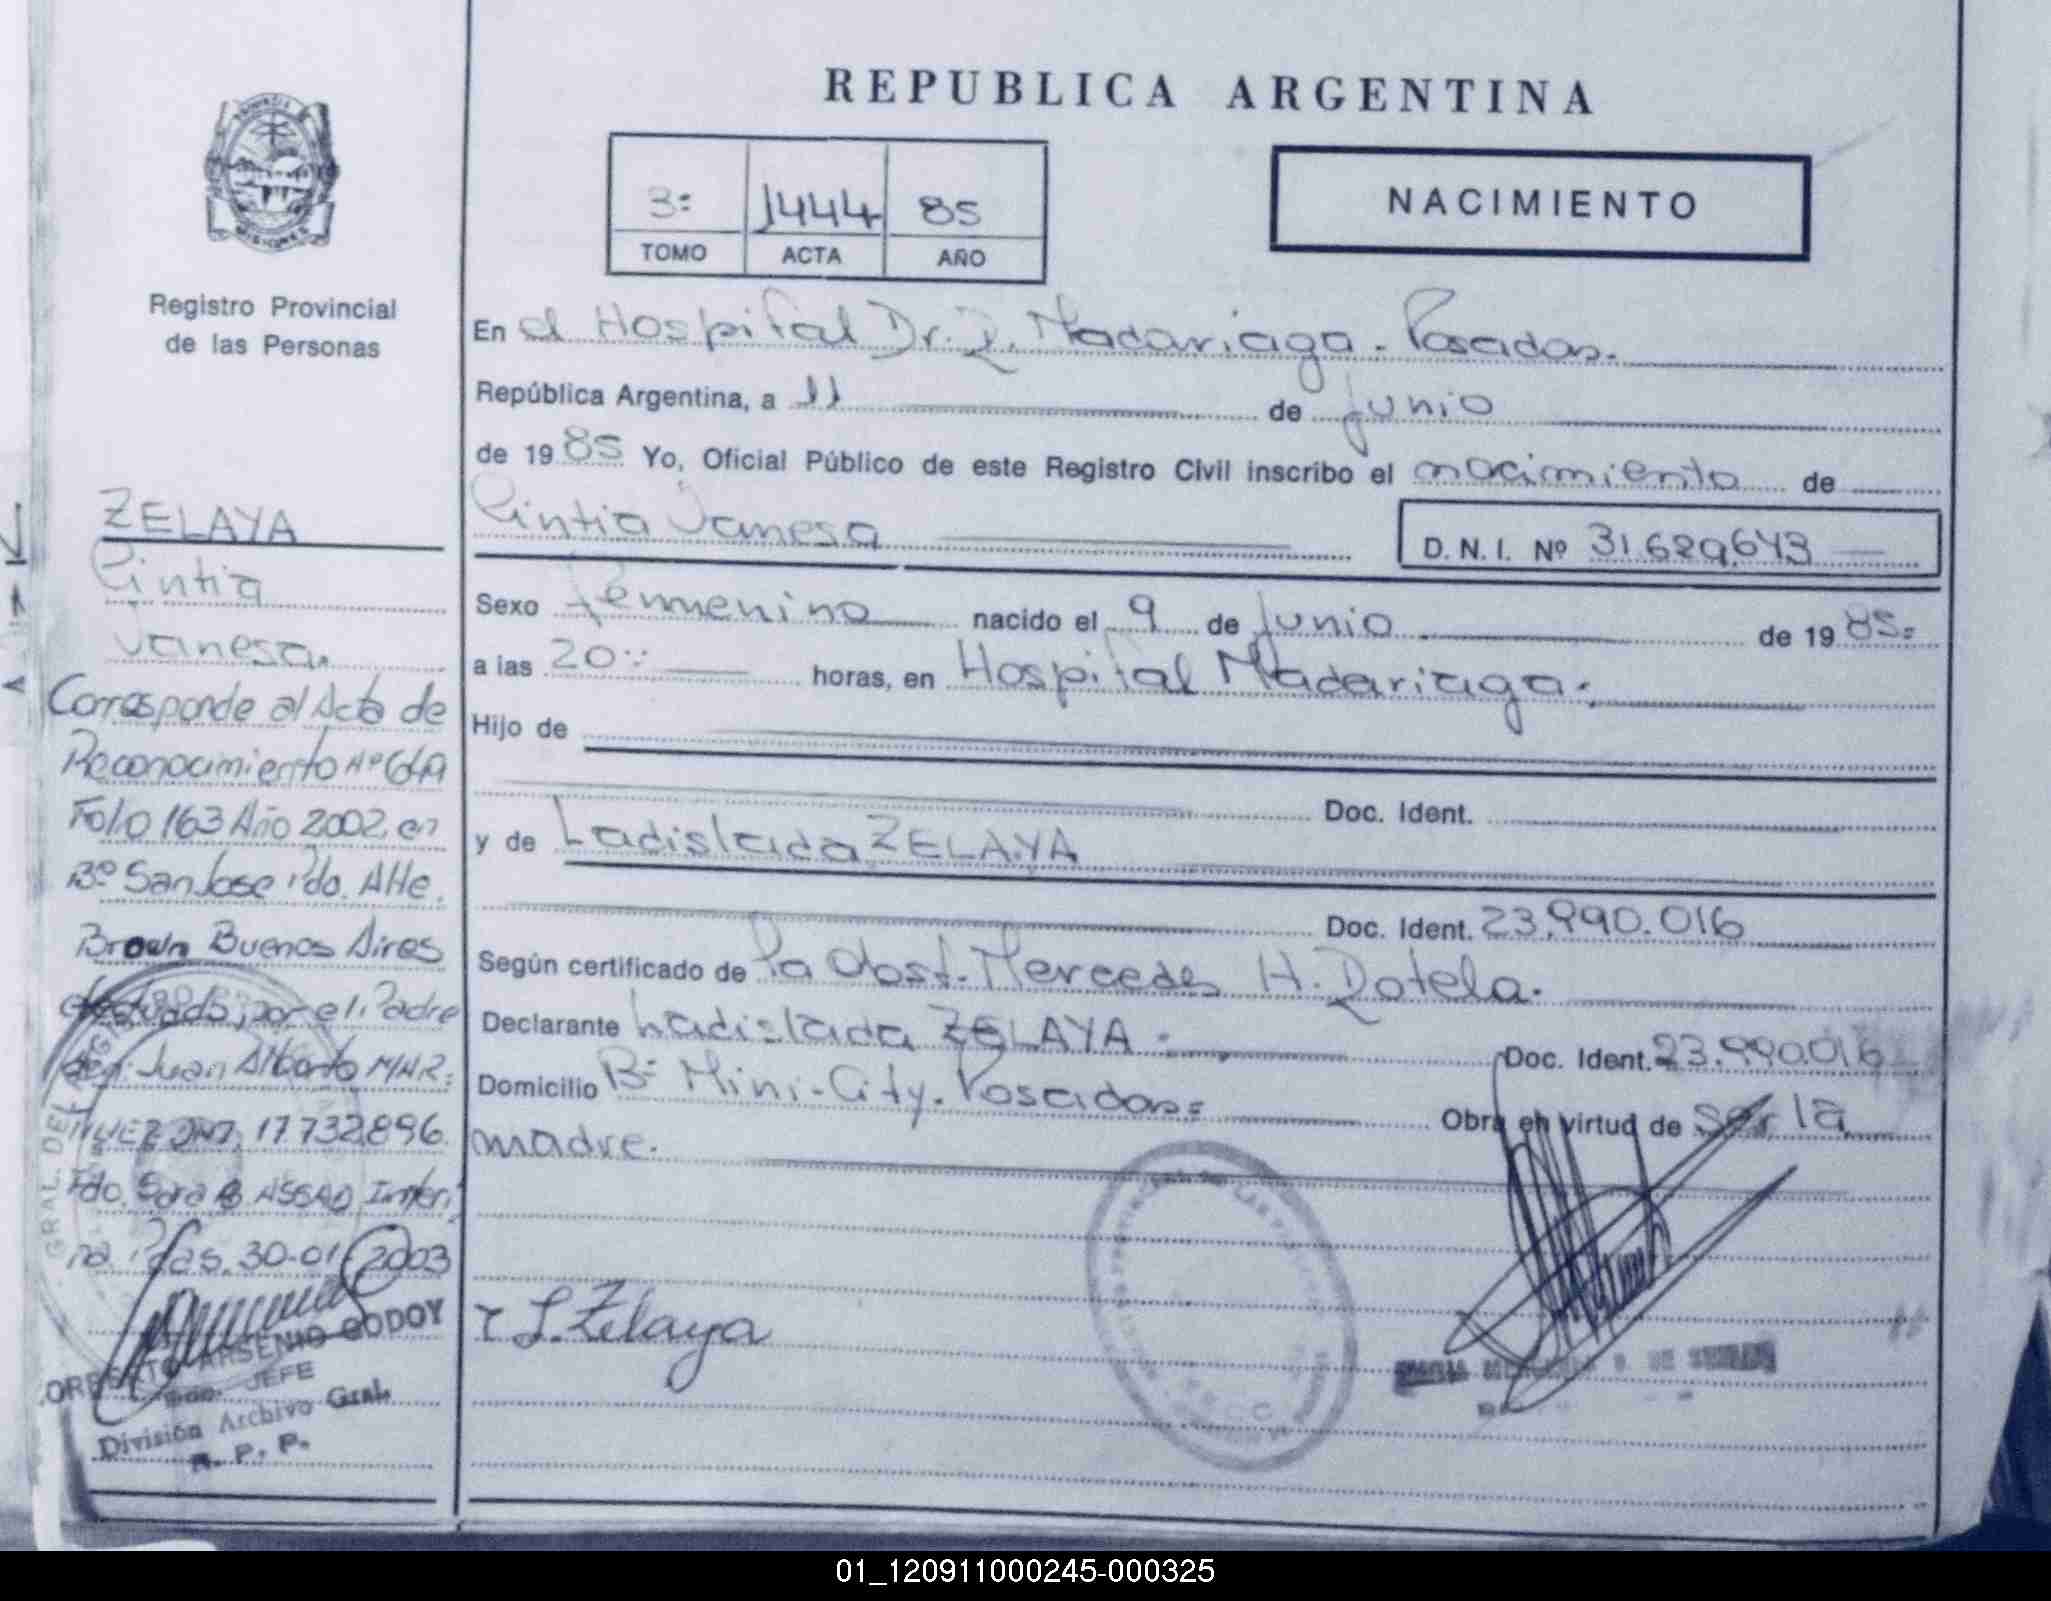 REPUBLICA ARGENTINA
3=
1444
85
TOMO
ACTA
AÑO
NACIMIENTO
Registro Provincial
de las Personas
ZELAYA
Cintia
Vanesa.
Corresponde al Acta de
Reconocimiento Nº 61A
Folio 163 Año 2002 en
Bº San Jose Pdo. Alte.
Brown Buenos Aires
efectuado por el Padre
Juan Alberto MAR=
QUEZ DNI 17.732.896
Fdo. Sara ASSAD Interi
na. Pdas. 30-01-2003
ARSENIO GODOY
JEFE
División Archivo Gral.
R. P. P.
En el Hospital Dr. R. Madariaga. Posadas.
República Argentina, a 11 de junio
de 1985 Yo, Oficial Público de este Registro Civil inscribo el nacimiento de
Cintia Vanesa
D. N. I. Nº 31.629.643
Sexo femenino nacido el 9 de Junio de 1985=
a las 20:: horas, en Hospital Madariaga.
Hijo de
Doc. Ident.
y de Ladislada ZELAYA
Doc. Ident. 23.990.016
Según certificado de la Obst. Mercedes H. Rotela.
Declarante Ladislada ZELAYA Doc. Ident. 23.990.016
Domicilio Bº Mini-City. Posadas= Obra en virtud de Ser la
madre.
L. Zelaya
01_120911000245-000325